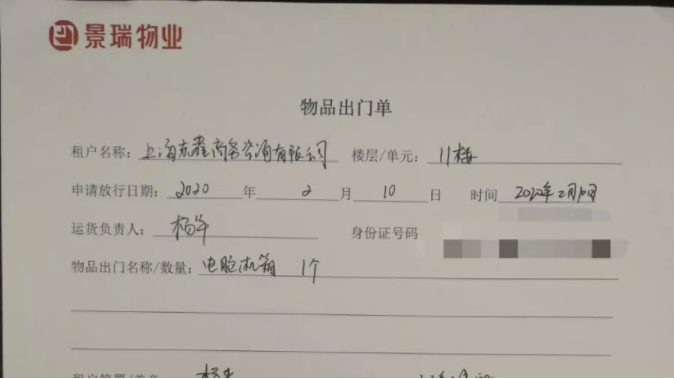 景瑞物业
物品出门单
租户名称: 上海东 商务咨询有限公司 楼层/单元: 11楼
申请放行日期: 2020 年 2 月 10 日 时间 2020年2月10日
运货负责人: 杨 身份证号码
物品出门名称/数量: 电脑机箱 1个